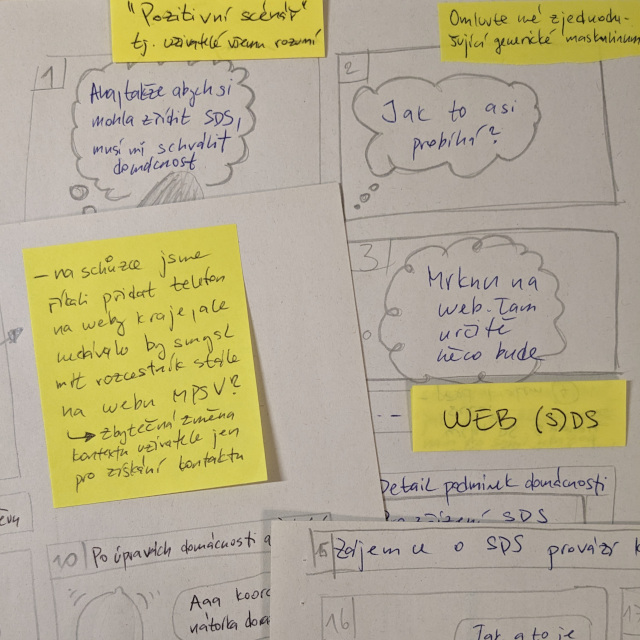 "Pozitivní scénář"
tj. uživatelé všemu rozumí
Omluvte mé zjednodu-
šující generické maskulinum
1
Aha, takže abych si
mohla zřídit SDS,
musí mi schválit
domácnost
2
Jak to asi
probíhá?
3
Mrknu na
web. Tam
určitě
něco bude
- na schůzce jsme
říkali přidat telefon
na weby kraje, ale
nedávalo by smysl
mít rozcestník stále
na webu MPSV?
→ zbytečná změna
kontextu uživatele jen
pro získání kontaktu
WEB (S)DS
Detail podmínek domácnosti
SDS
10 Po úpravách domácnosti a
Aaa koord
15 Zájemce o SDS provází k
16
Jak a to je